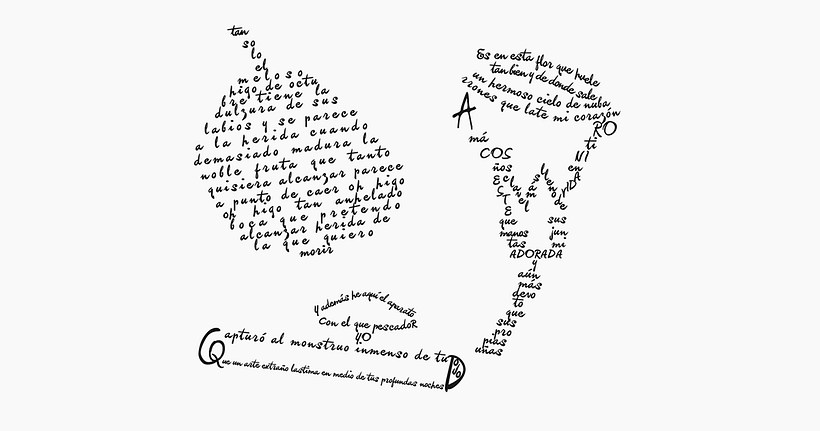 tan
so
lo
el
meloso
higo de octu
bre tiene la
dulzura de sus
labios y se parece
a la herida cuando
demasiado madura la
noble fruta que tanto
quisiera alcanzar parece
a punto de caer oh higo
oh higo tan anhelado
boca que pretendo
alcanzar herida de
la que quiero
morir
Es en esta flor que huele
tan bien y de donde sale
un hermoso cielo de nuba
rrones que late mi corazón
A RO
má ti
COS NI
ños en
de
que sus
manos jun
tas mi
ADORADA
y
aún
más
devo
to
que
sus
pro
pias
uñas
Y además he aquí el aparato
Con el que pescadoR
YO
Capturó al monstruo inmenso de tu OJO
Que un arte extraño lastima en medio de tus profundas noches